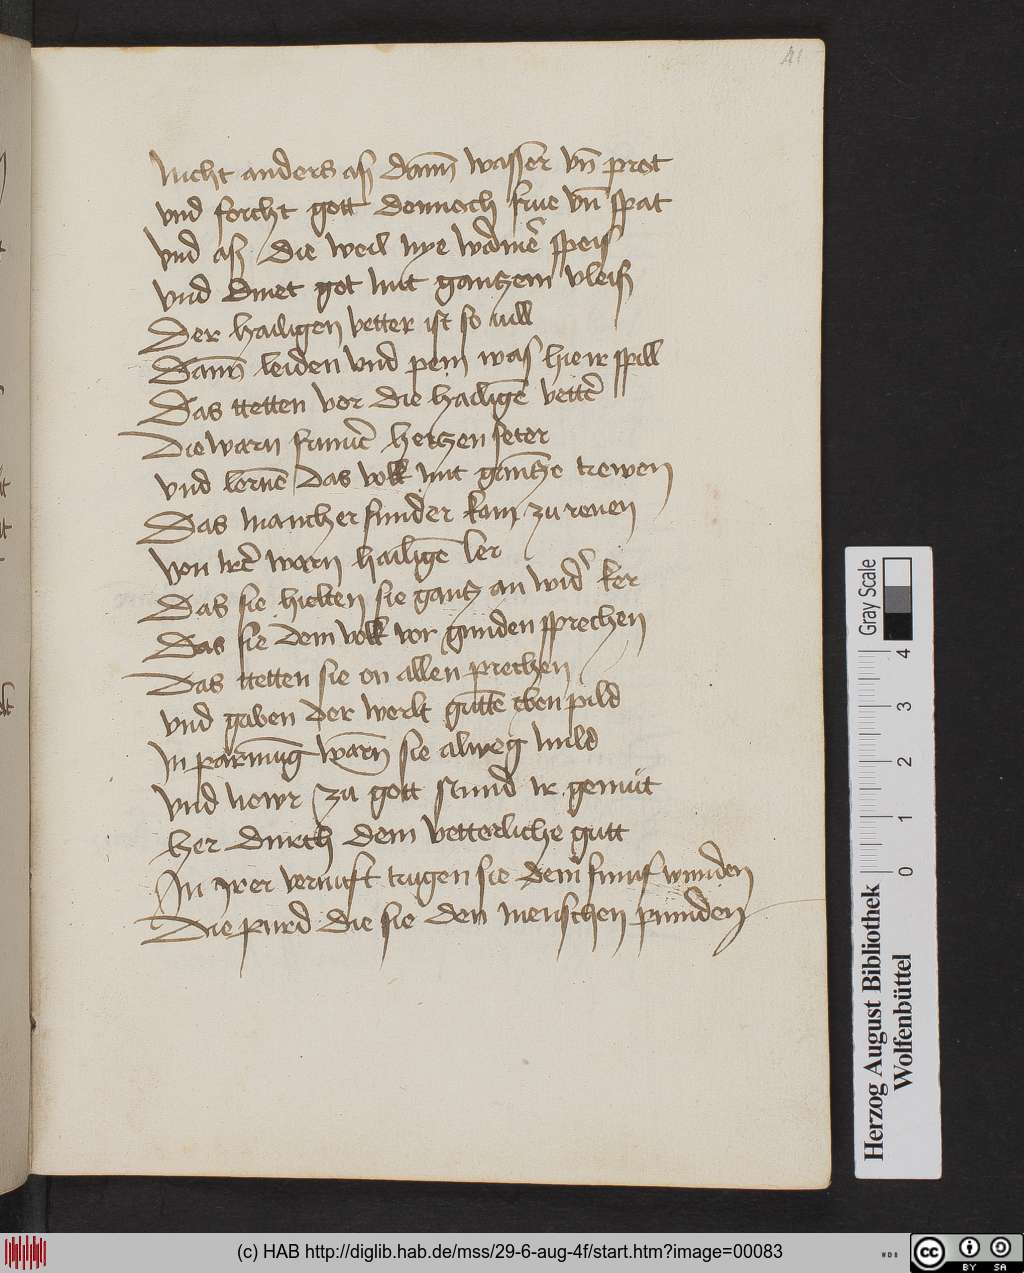 41
Nicht anders aß dann wasser vn̄ prot
vnd forcht gott dennoch frue vn̄ spat
vnd aß die weil nye wārmē speis
vnd dinet got mit gantzem vleiß
Der hailigen vetter ist so vill
Dann leiden vnd pein was hieir spill
Das tetten vor die hailigē vettē
Die warn hertzen seter
vnd lernē das volk mit gantze trewen
Das mancher sunder kam zu reuen
von irē warn hailigē ler
Das sie hielten sie gantz an wid̄ ker
Das sie dem volk vor gunden sprechen
Das tetten sie on allen prechen
vnd gaben der werlt gutte eben pild
In parmūg warn sie alweg mild
vnd newr zu gott stund ir gemüt
her durch dem vetterliche gutt
In irer vernuft trugen sie dein funf wunden
Die purd die sie den menschen punden
Herzog August Bibliothek
Wolfenbüttel
Gray Scale
0 1 2 3 4
(c) HAB http://diglib.hab.de/mss/29-6-aug-4f/start.htm?image=00083
cc BY SA